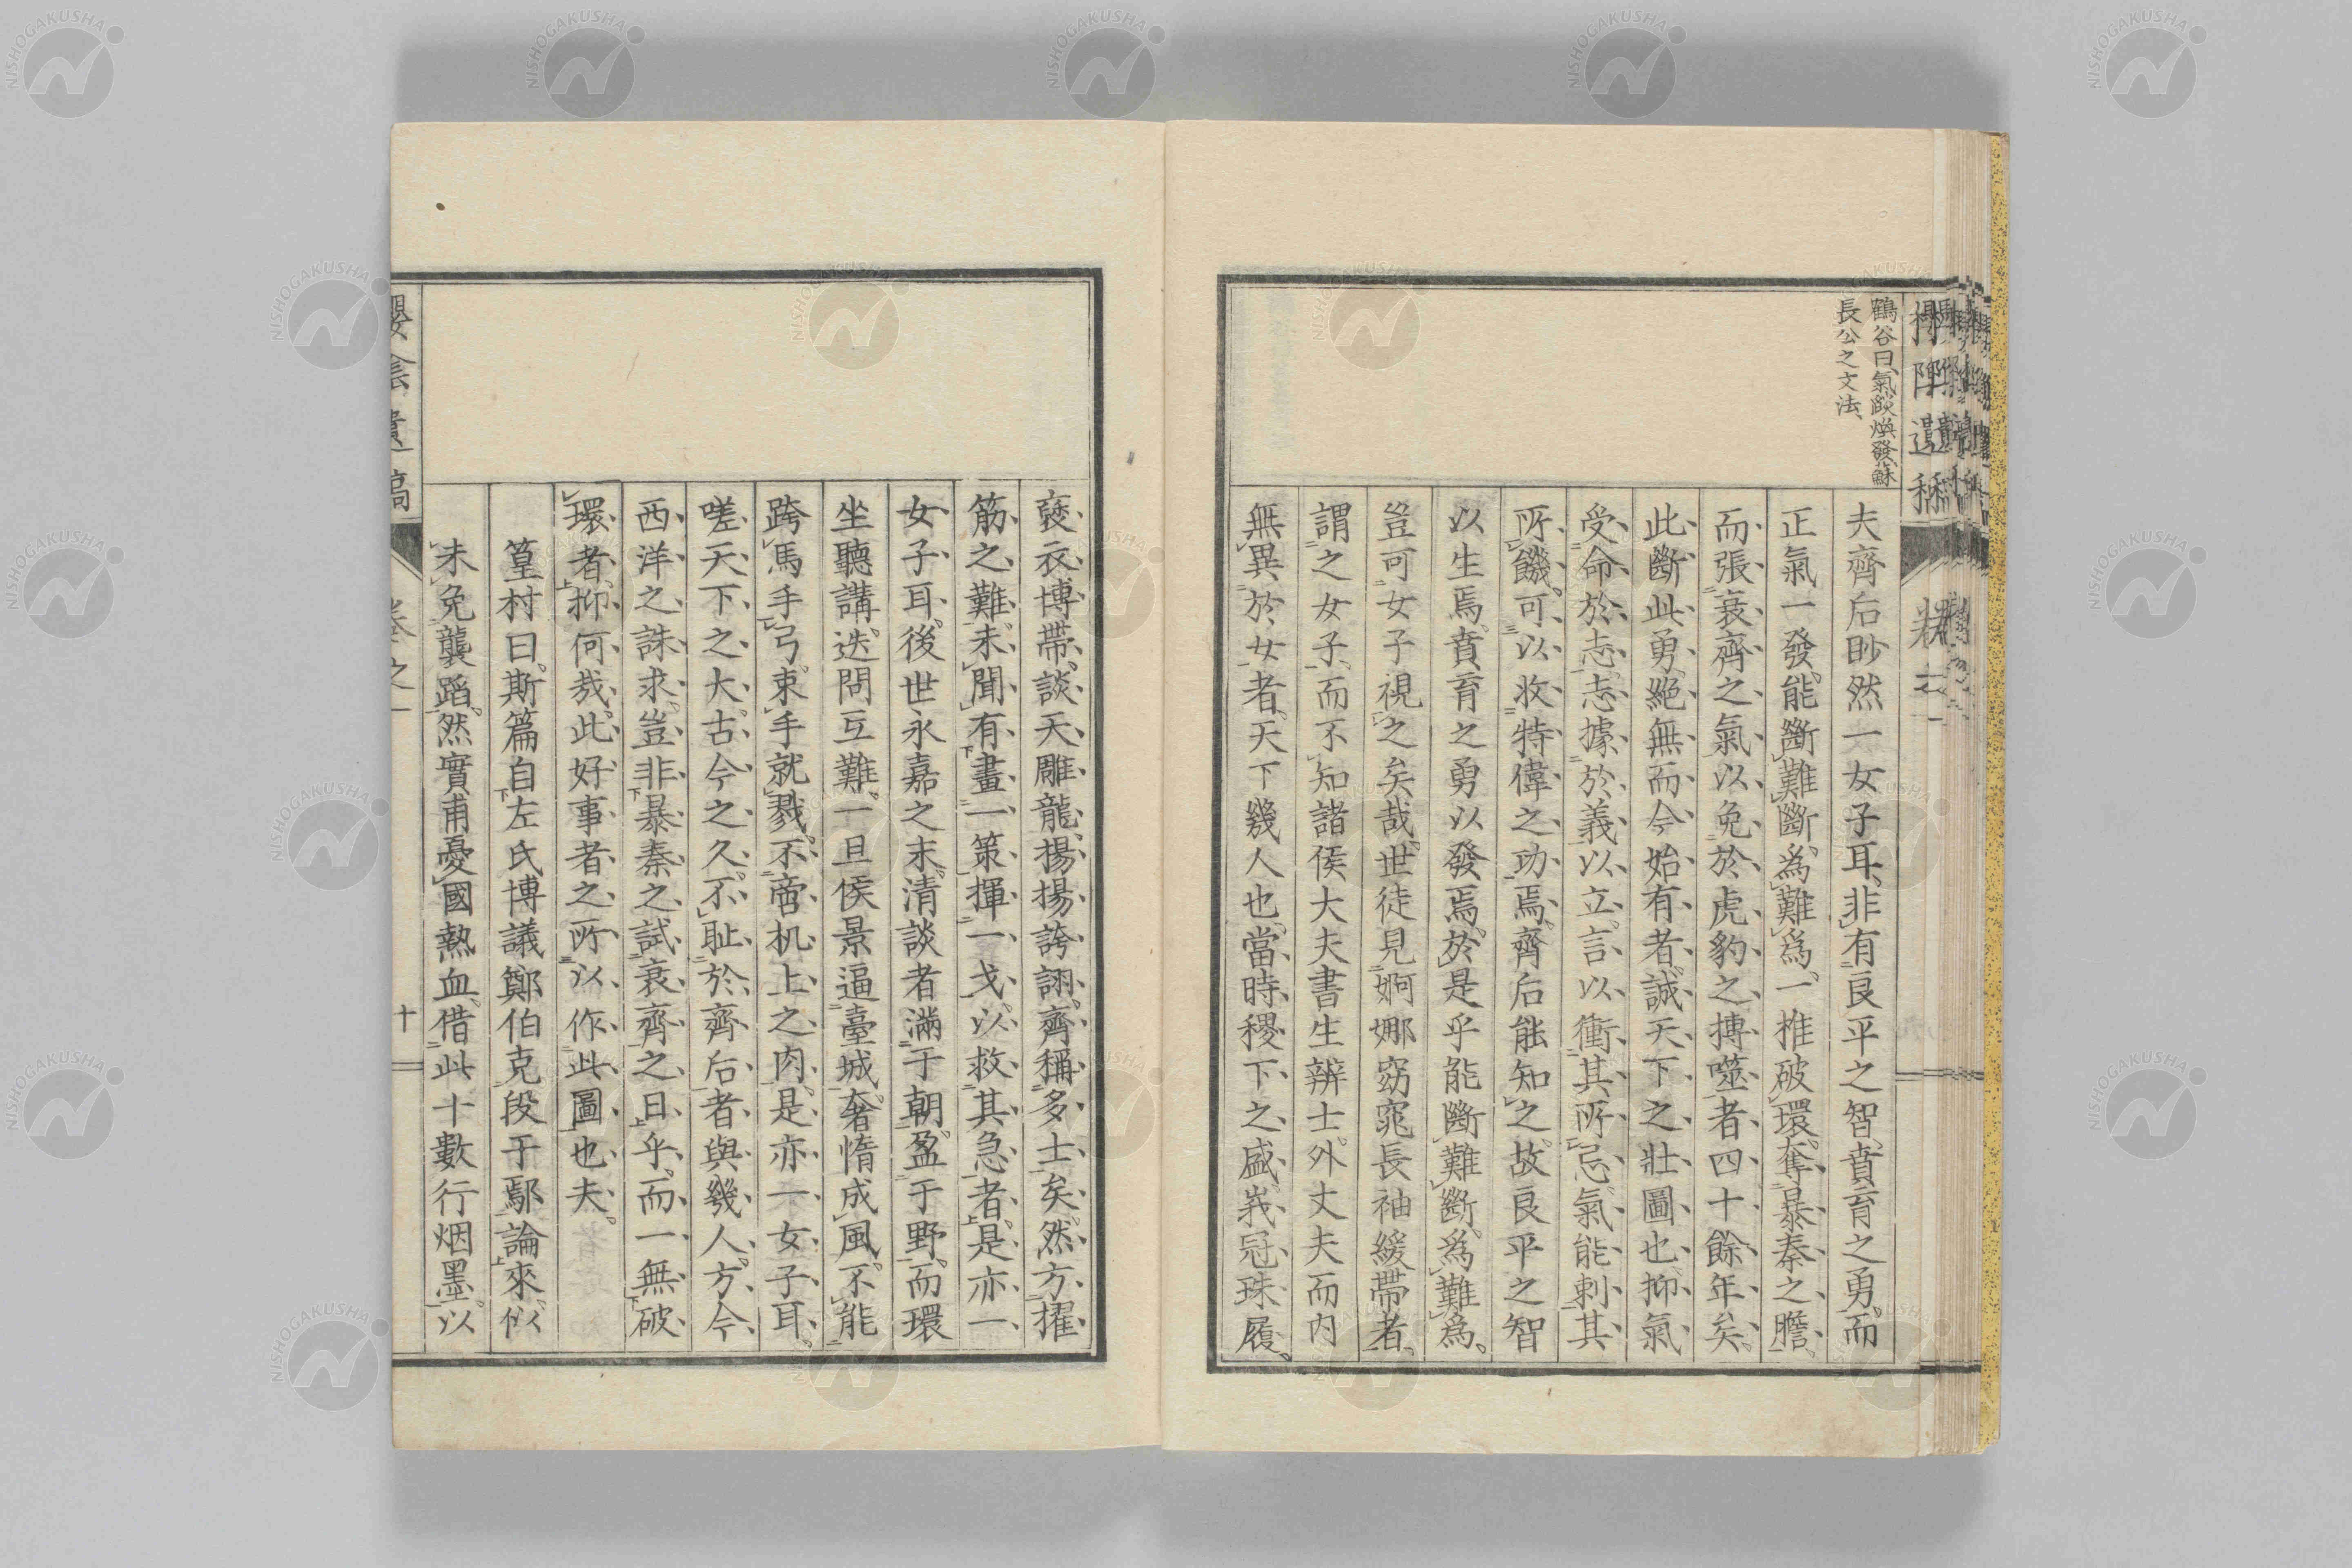 鶴谷曰、氣燄煥發、蘇
長公之文法、
夫齊后眇然一女子耳、非有良平之智、賁育之勇、而
正氣一發、能斷難斷、爲難爲、一推破環、奪暴秦之膽、
而張衰齊之氣、以免於虎豹之搏噬者四十餘年矣、
此斷此勇、絕無而今始有者、誠天下之壯圖也、抑氣
受命於志、志據於義以立、言以衝其所忌、氣能刺其
所饑、可以收特偉之功焉、齊后能知之、故良平之智
以生焉、賁育之勇以發焉、於是乎能斷難斷、爲難爲、
豈可女子視之矣哉、世徒見婀娜窈窕長袖緩帶者、
謂之女子、而不知諸侯大夫書生辨士、外丈夫而內
無異於女者、天下幾人也、當時稷下之盛、峩冠珠履、
襃衣博帶、談天雕龍、揚揚誇詡、齊稱多士矣、然方擢
筋之難、未聞有畫一策揮一戈、以救其急者、是亦一
女子耳、後世永嘉之末、清談者滿于朝、盈于野、而環
坐聽講、迭問互難、一旦侯景逼臺城、奢惰成風、不能
跨馬手弓、束手就戮、不啻机上之肉、是亦一女子耳、
嗟天下之大、古今之久、不耻於齊后者與幾人、方今
西洋之誅求、豈非暴秦之試衰齊之日乎、而一無破
環者、抑何哉、此好事者之所以作此圖也夫、
篁村曰、斯篇自左氏博議鄭伯克段于鄢論來、似
未免襲蹈、然實甫憂國熱血、借此十數行烟墨、以
櫻陰遺稿
卷之一
十